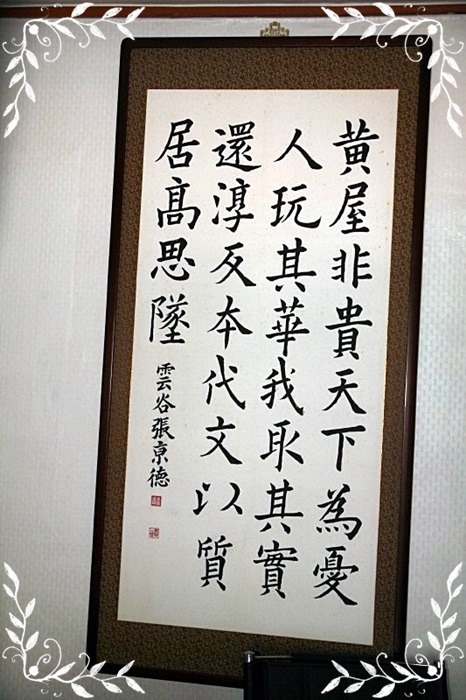 黃屋非貴天下為憂
人玩其華我取其實
還淳反本代文以質
居高思墜
雲谷張京德